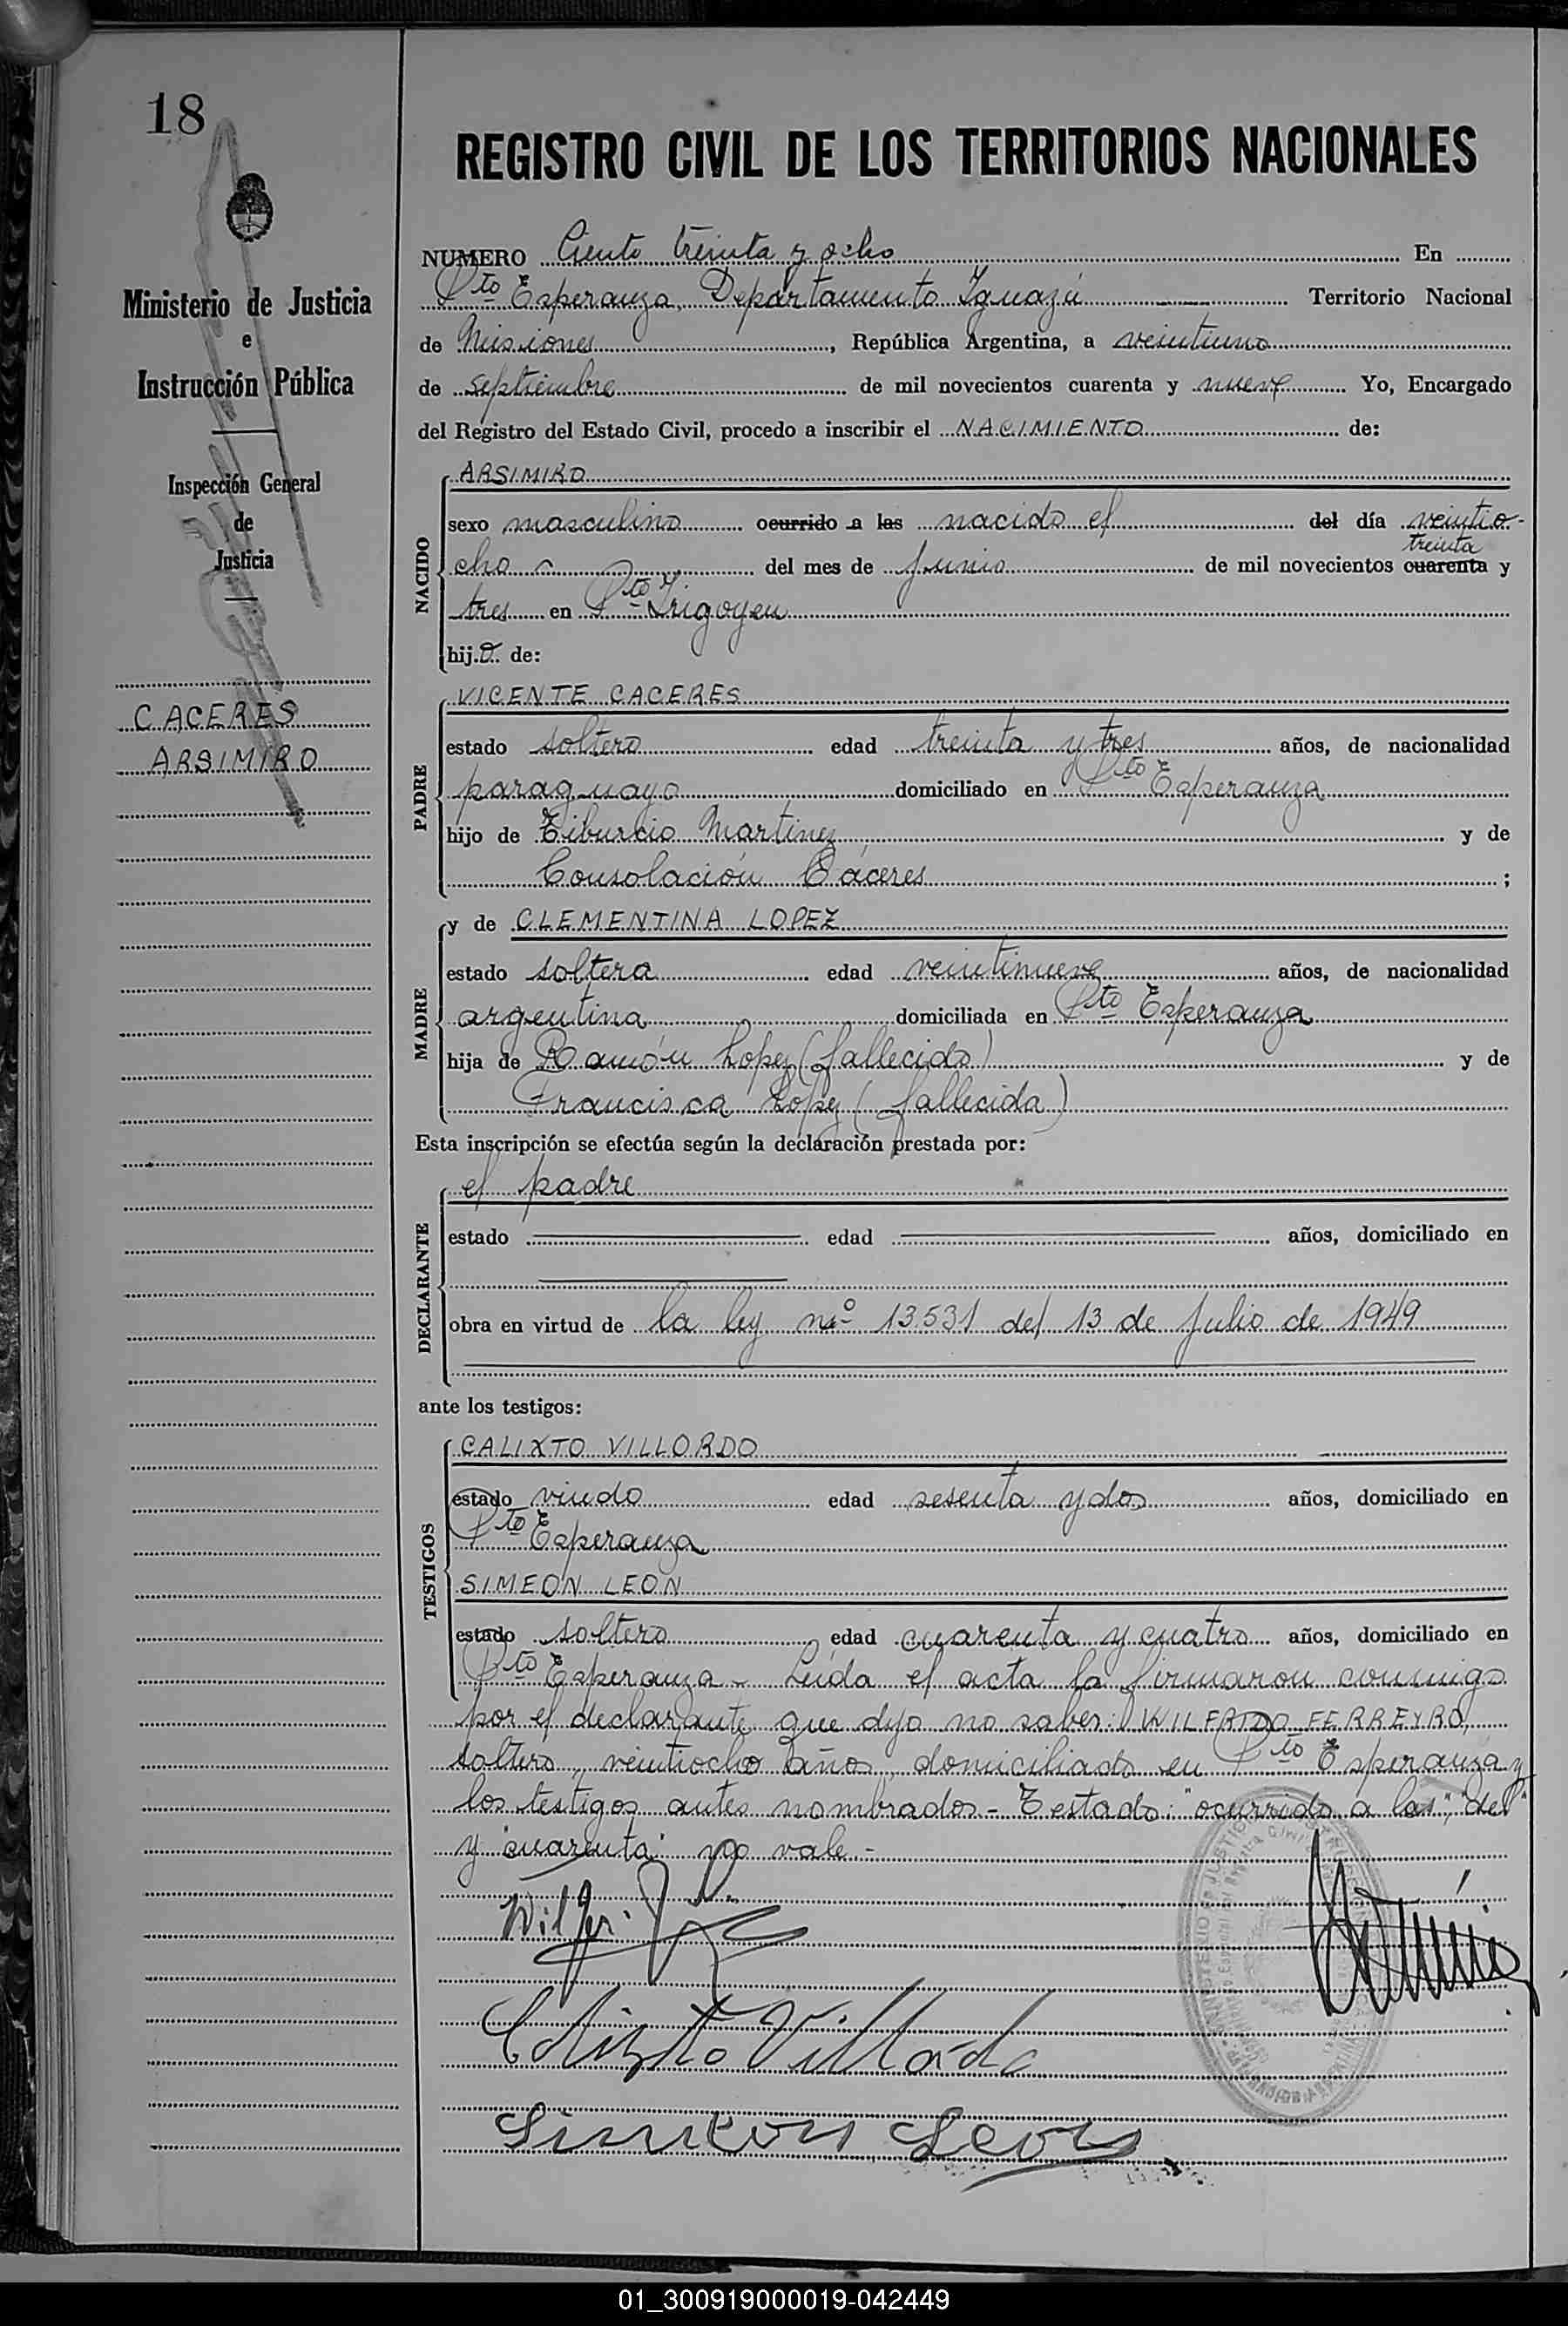 18
Ministerio de Justicia
e
Instrucción Pública
Inspección General
de
Justicia
CACERES
ARSIMIRO
REGISTRO CIVIL DE LOS TERRITORIOS NACIONALES
NUMERO Ciento treinta y ocho En
Pto Esperanza, Departamento Iguazú Territorio Nacional
de Misiones, República Argentina, a veintiuno
de septiembre de mil novecientos cuarenta y nueve Yo, Encargado
del Registro del Estado Civil, procedo a inscribir el NACIMIENTO de:
NACIDO
ARSIMIRO
sexo masculino ocurrido a las nacido el del día veintio-
treinta
cho del mes de Junio de mil novecientos cuarenta y
tres en Pto Y. Irigoyen
hijo de:
PADRE
VICENTE CACERES
estado soltero edad treinta y tres años, de nacionalidad
paraguayo domiciliado en Pto Esperanza
hijo de Tiburcio Martinez y de
Consolación Cáceres ;
MADRE
y de CLEMENTINA LOPEZ
estado soltera edad veintinueve años, de nacionalidad
argentina domiciliada en Pto Esperanza
hija de Ramón Lopez (fallecido) y de
Francisca Lopez (fallecida)
Esta inscripción se efectúa según la declaración prestada por:
DECLARANTE
el padre
estado edad años, domiciliado en
obra en virtud de la ley no 13.531 del 13 de Julio de 1949
ante los testigos:
TESTIGOS
CALIXTO VILLORDO
estado viudo edad sesenta y dos años, domiciliado en
Pto Esperanza
SIMEON LEON
estado soltero edad cuarenta y cuatro años, domiciliado en
Pto Esperanza - Leída el acta la firmaron conmigo
por el declarante que dijo no saber: WILFRIDO FERREYRO,
soltero, veintiocho años, domiciliado en Pto Esperanza y
los testigos antes nombrados - Testado: "ocurrido a las", "del"
y "cuarenta" no vale. -
Calixto Villordo
Simeon Leon
01_300919000019-042449